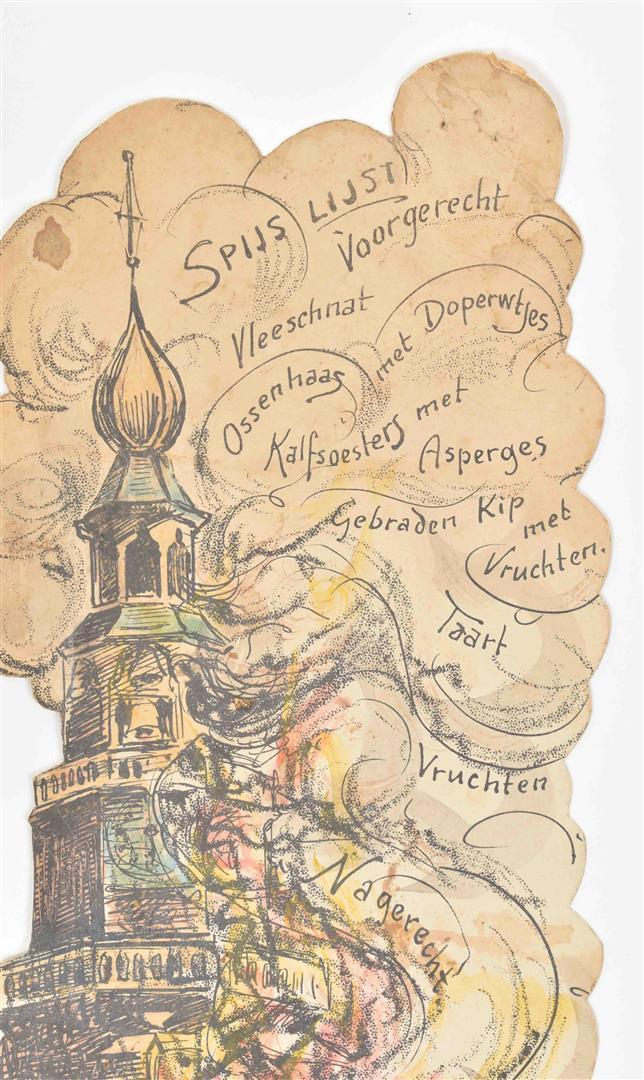 SPIJS LIJST
Voorgerecht
Vleeschnat
Ossenhaas met Doperwtjes
Kalfsoesters met
Asperges
Gebraden Kip met
Vruchten.
Taart
Vruchten
Nagerecht